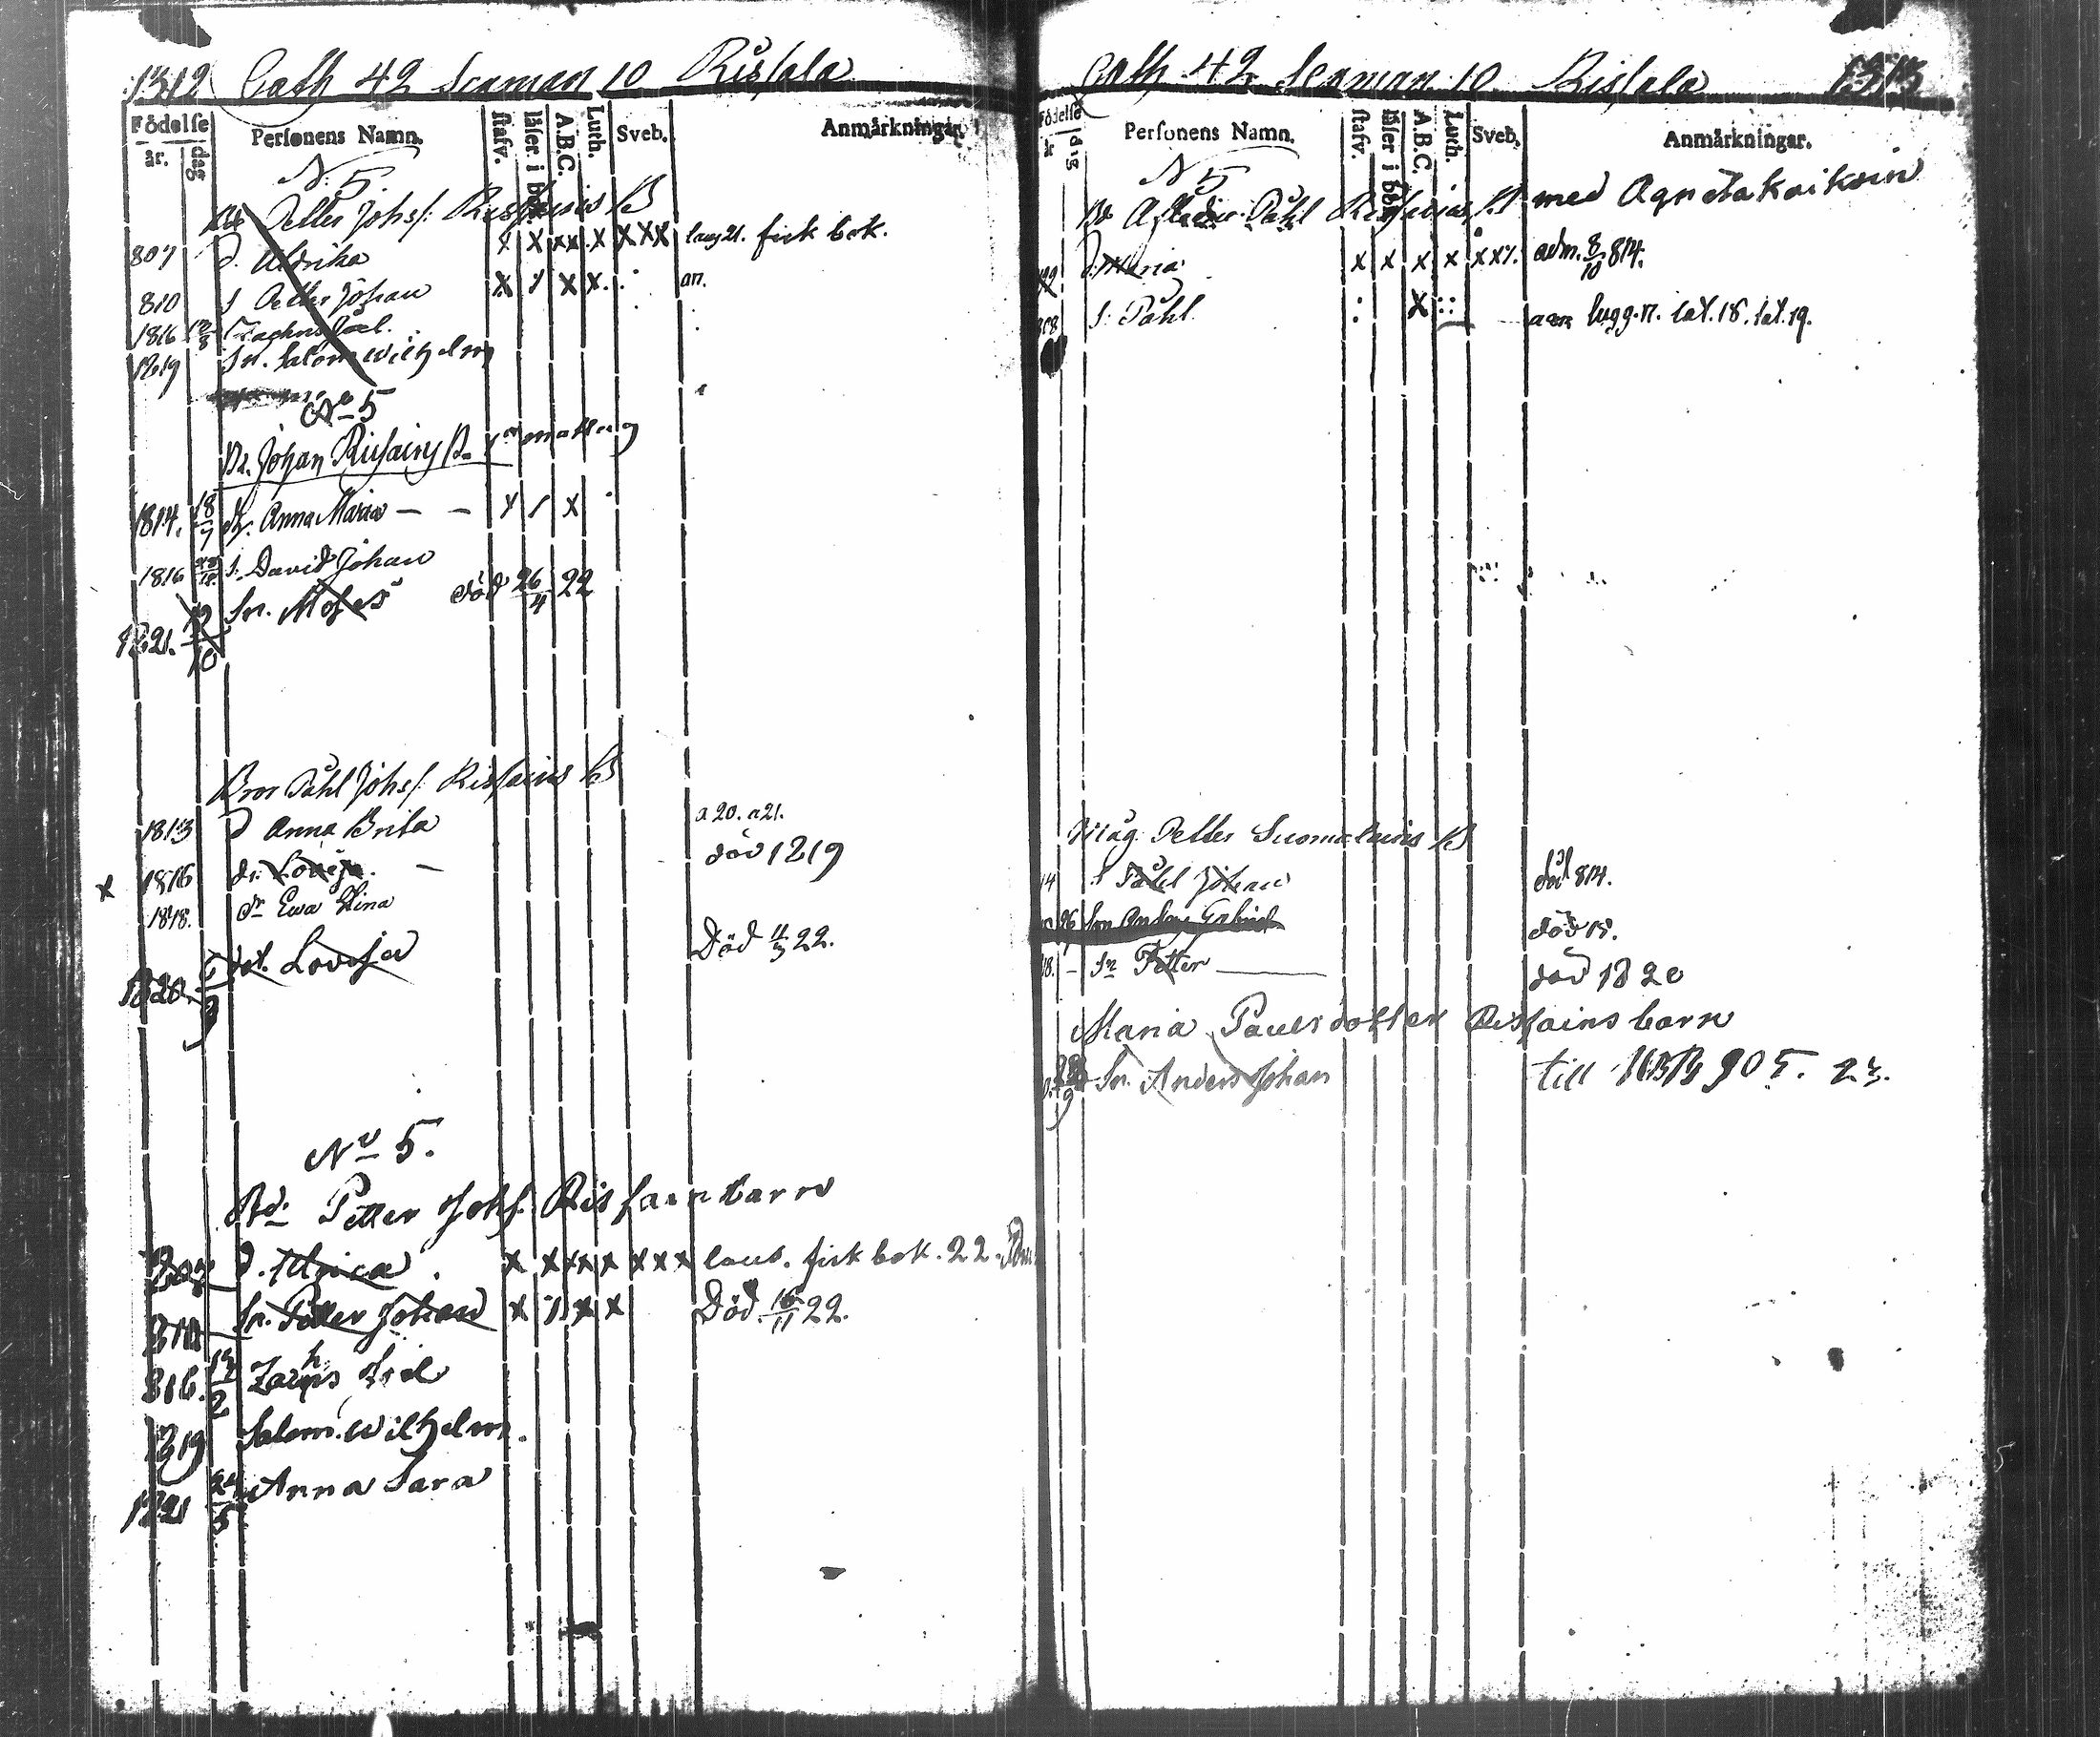 1312 Cath 42 Seaman 10 Risfala
Födelse
år. dag Personens Namn. stafv. läser i bok A.B.C. Luth. Sveb. Anmärkningar.
N. 5
Bd Petter Johs/: Risfains B
807 d. Uldrika x x xx x xxx laug 21. fick bok.
810 s Petter Johan x / x x. an.
1816 Zachris Joel.
1819 Sn. Salom Wilhelm
No 5
Bd. Johan Risfains B.
1814. 18/7 dr. Anna Maria — — x / x
1816 s. David Johan
1821. 19/10 Sn. Moses död 26/4 22
Bror Påhl Johs/: Risfains B
1813 d Anna Brita a 20. a 21.
x 1816 dr: Lovisa. — död 1819
1818. dr Ewa Stina
1820. dot. Lovisa Död 11/3 22.
No 5.
Bd: Petter Johs. Risfain barn
807 d. Ulrica x x xx x xxx laub. fick bok. 22.
810 Sn. Petter Johan x / x x Död 16/11 22.
816. Zachris Joel
1819 Salom. Wilhelm.
1821 Anna Sara
Cath 42 Seaman 10 Risfala 1313
Födelse
år dag Personens Namn. stafv. läser i bok A.B.C. Luth. Sveb. Anmärkningar.
N 5
Bd Påhl Risfains B med Agneta Kaikoin
99 d: Maria x x x x xx/. adm. 8/10 814.
808 s: Påhl x lugg. 17. lat. 18. lat. 19.
Måg Petter Suomalains B
14 s Påhl Johan död 814.
Son Anders Gabriel död 15.
18. — Sn Petter död 1820
Maria Paulsdotter Risfains barn
Sn. Anders Johan till 905. 23.